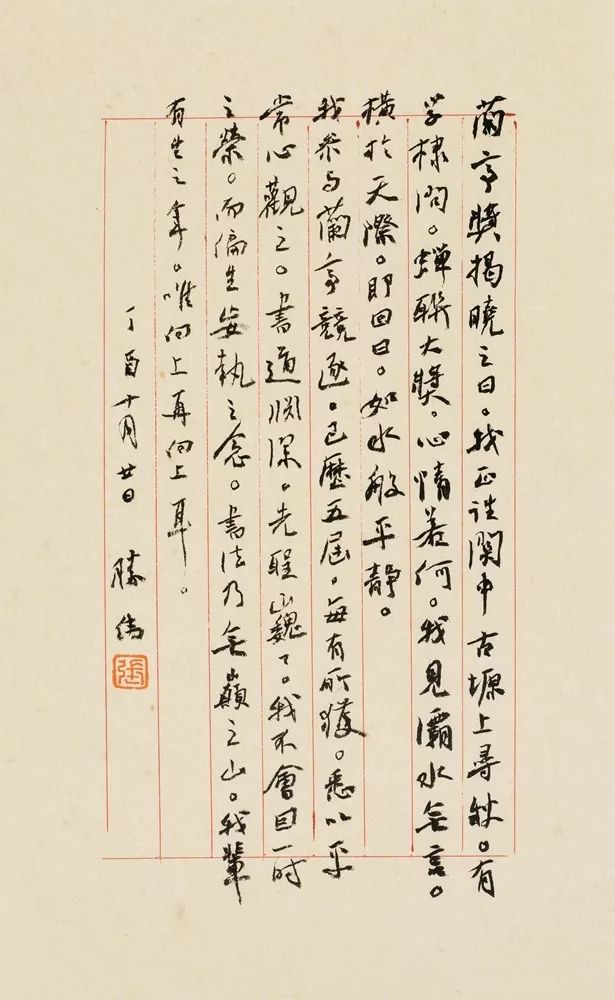 蘭亭獎揭曉之日。我正往關中古塬上尋秋。有
學棣問。蟬聯大獎。心情若何。我見灞水無言。
橫於天際。即回曰。如水般平靜。
我參與蘭亭競逐。已歷五屆。每有所獲。悉以平
常心觀之。書道淵深。先聖巍巍。我不會因一時
之榮。而偏生妄執之念。書法乃無巔之山。我輩
有生之年。唯向上再向上耳。
丁酉十月廿日 勝偉
張